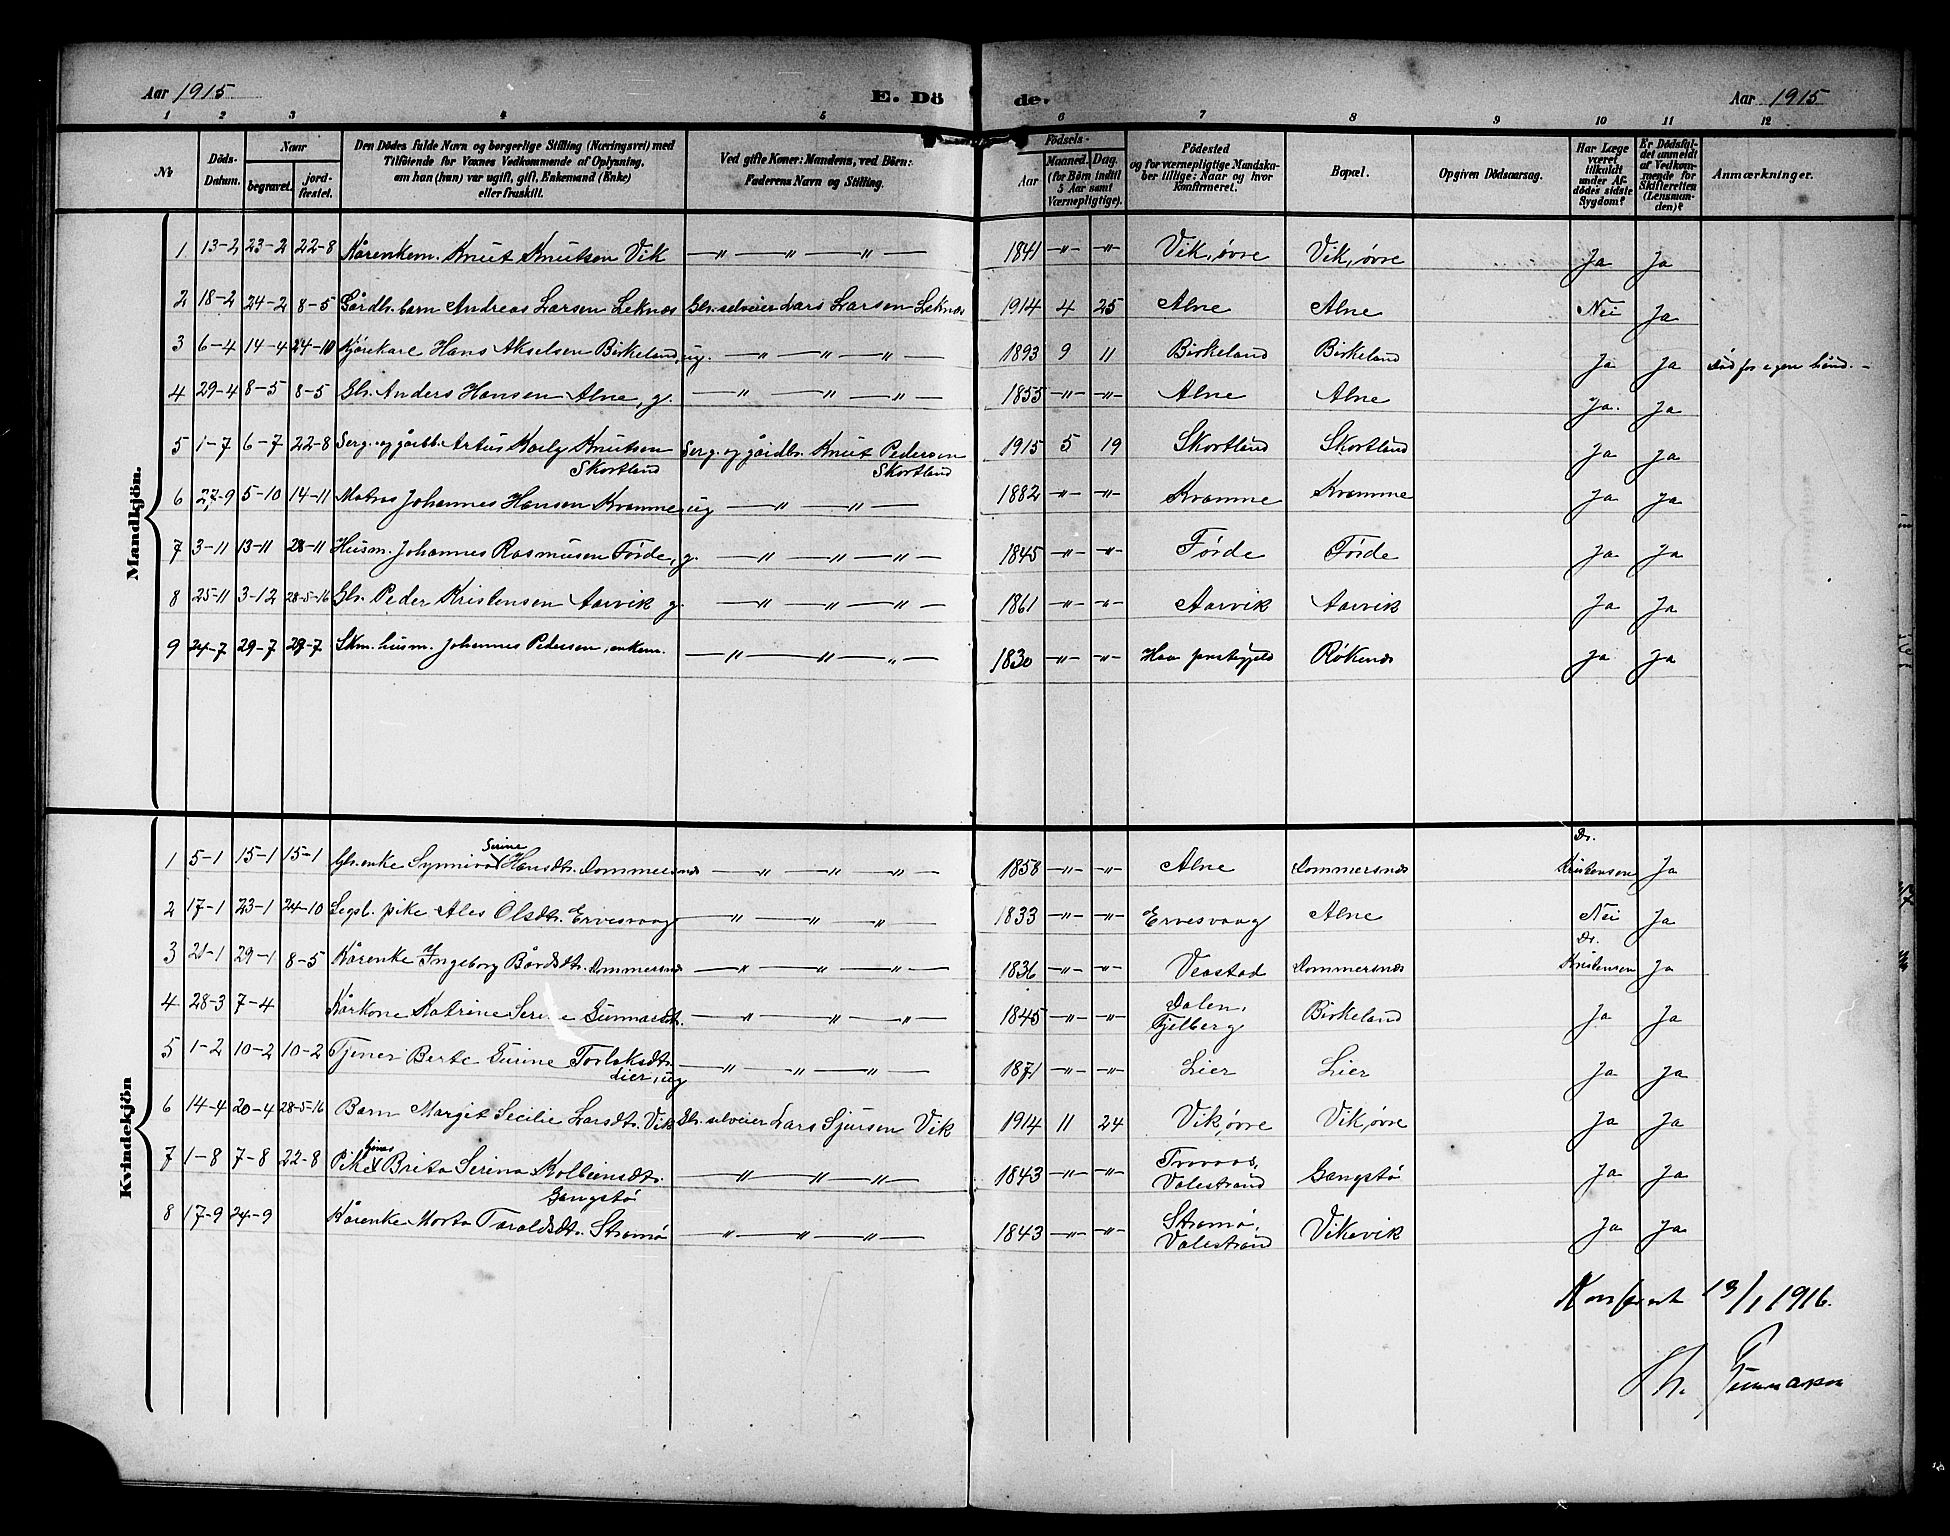 Aar 1915
E. Dö de.
Aar 1915
1 2 3 4 5 6 7 8 9 10 11 12
No
Döds-Datum.
Naar
begravet.
jord-fæstet.
Den Dödes fulde Navn og borgerlige Stilling (Næringsvei) med
Tilföiende for Voxnes Vedkommende af Oplysning,
om han (hun) var ugift, gift, Enkemand (Enke)
eller fraskilt.
Ved gifte Koner: Mandens, ved Börn:
Faderens Navn og Stilling.
Födsels-
Aar
Maaned. Dag.
(for Börn indtil
5 Aar samt
Værnepligtige).
Födested
og for værnepligtige Mandska-
ber tillige: Naar og hvor
konfirmeret.
Bopæl.
Opgiven Dödsaarsag.
Har Læge
været
tilkaldt
under Af-
dödes sidste
Sygdom?
Er Dödsfal-
det anmeldt
af Vedkom-
mende for
Skifteretten
(Lensman-
den)?
Anmærkninger.
Mandkjön.
1 13-2 23-2 22-8 Kårenkem. Knut Knutsen Vik — " — " — " — 1841 -"- -"- Vik, øvre Vik, øvre Ja Ja
2 18-2 24-2 8-5 Gårdbr. barn Andreas Larsen Leknes Gbr. selveier Lars Larsen Leknes 1914 4 25 Alne Alne Nei Ja
3 6-4 14-4 24-10 Kjørekarl Hans Akselsen Birkeland, ug. — " — " — " 1893 9 11 Birkeland Birkeland Ja Ja Død for egen hånd. -
4 29-4 8-5 8-5 Gbr. Anders Hansen Alne, g. — " — " — " — 1855 -"- -"- Alne Alne Ja. Ja
5 1-7 6-7 22-8 Serg. og gårdb. Artus Karly Knutsen Serg. og gårdbr. Knut Pedersen 1915 5 19 Skortland Skortland Ja Ja
Skortland Skortland
6 27-9 5-10 14-11 Matros Johannes Hansen Kvamme, ug — " — " — 1882 -"- -"- Kvamme Kvamme Ja Ja
7 3-11 13-11 28-11 Husm. Johannes Rasmusen Førde, g. — " — " — " — 1845 -"- -"- Førde Førde Ja Ja
8 25-11 3-12 28-5-16 Gbr. Peder Kristensen Aarvik g. — " — " — " — 1861 -"- -"- Aarvik Aarvik Ja Ja
9 24-7 29-7 29-7 Skm. husm. Johannes Pedersen, enkem. — " — " — " — 1830 -"- -"- Hau prestegjeld Røkenes Ja Ja
Kvindekjön
Serine Dr.
1 5-1 15-1 15-1 Gbr. enke Synniva Hansdtr. Dommersnes — " — " — " — 1858 -"- -"- Alne Dommersnes Kristensen Ja
2 17-1 23-1 24-10 Legsl. pike Ales Olsdtr. Ervesvaag — " — " — " — 1833 -"- -"- Ervesvaag Alne Nei Ja
Dr.
3 21-1 29-1 8-5 Kårenke Ingeborg Bårdsdtr. Dommersnes — " — " — " — 1836 -"- -"- Veastad Dommersnes Kristensen Ja
4 28-3 7-4 Kårkone Katrine Serine Gunnarsdtr. — " — " — " — 1845 -"- -"- Dalen, Fjelberg Birkeland Ja Ja
5 1-2 10-2 10-2 Tjener Berte Gurine Torlaksdtr. — " — " — " — 1871 -"- -"- Lier Lier Ja Ja
Lier, ug
6 14-4 20-4 28-5-16 Barn Margit Secilie Larsdtr. Vik Gbr. selveier Lars Sjursen Vik 1914 11 24 Vik, øvre Vik, øvre Ja Ja
7 1-8 7-8 22-8 Pike Brita Serina Kolbeinsdtr. — " — " — " — 1843 -"- -"- Valestrand Gangstø Ja Ja
Gangstø
8 17-9 24-9 Kårenke Marta Taraldsdtr. Strømø — " — " — " — 1843 -"- -"- Strømø, Valestrand Vikevik Ja Ja
Konferert 13/1 1916.
Th. Gunnarson